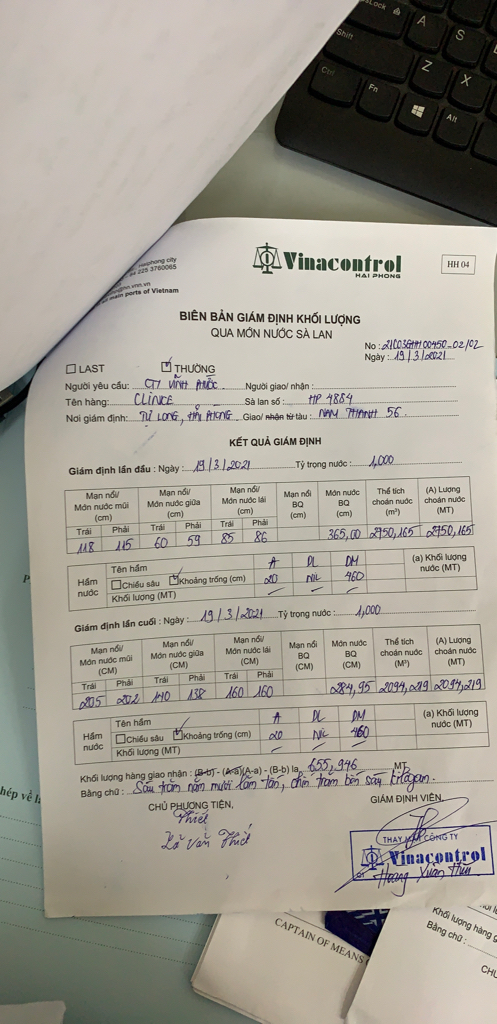 CapsLock
A
S
Shift
Z
X
Ctrl
Fn
Alt
Haiphong city
225 3760065
@hn.vnn.vn
main ports of Vietnam
Vinacontrol
HAI PHONG
HH 04
BIÊN BẢN GIÁM ĐỊNH KHỐI LƯỢNG
QUA MÓN NƯỚC SÀ LAN
No : 21C03GHH00450-02/02
Ngày : 19/3/2021
LAST THƯỜNG
Người yêu cầu: CTY VĨNH PHƯỚC Người giao/ nhận :
Tên hàng: CLINKE Sà lan số : HP 4884
Nơi giám định: TỰ LONG, HẢI PHÒNG Giao/ nhận từ tàu : NAM THANH 56
KẾT QUẢ GIÁM ĐỊNH
Giám định lần đầu : Ngày : 19/3/2021 Tỷ trọng nước : 1,000
Mạn nổi/ Món nước mũi (cm) Mạn nổi/ Món nước giữa (cm) Mạn nổi/ Món nước lái (cm) Mạn nổi BQ (cm) Món nước BQ (cm) Thể tích choán nước (m³) (A) Lượng choán nước (MT)
Trái Phải Trái Phải Trái Phải
118 115 60 59 85 86 365,00 2750,165 2750,165
Hầm nước Tên hầm A DL DM (a) Khối lượng nước (MT)
Chiều sâu Khoảng trống (cm) 20 NIL 460
Khối lượng (MT) – – –
Giám định lần cuối : Ngày : 19/3/2021 Tỷ trọng nước : 1,000
Mạn nổi/ Món nước mũi (CM) Mạn nổi/ Món nước giữa (CM) Mạn nổi/ Món nước lái (CM) Mạn nổi BQ (CM) Món nước BQ (CM) Thể tích choán nước (M³) (A) Lượng choán nước (MT)
Trái Phải Trái Phải Trái Phải
205 202 140 138 160 160 284,95 2094,219 2094,219
Hầm nước Tên hầm A DL DM (a) Khối lượng nước (MT)
Chiều sâu Khoảng trống (cm) 20 NIL 460
Khối lượng (MT) – – –
Khối lượng hàng giao nhận : (B-b) - (A-a)(A-a) - (B-b) là 655,946 MT
Bằng chữ : Sáu trăm năm mươi lăm tấn, chín trăm bốn sáu kilogam.
CHỦ PHƯƠNG TIỆN,
GIÁM ĐỊNH VIÊN,
Thiết
Lã Văn Thiết
THAY MẶT CÔNG TY
Vinacontrol
Hoàng Xuân
hép về
CAPTAIN OF MEANS
Khối lượng
Bằng chữ :
CHỦ